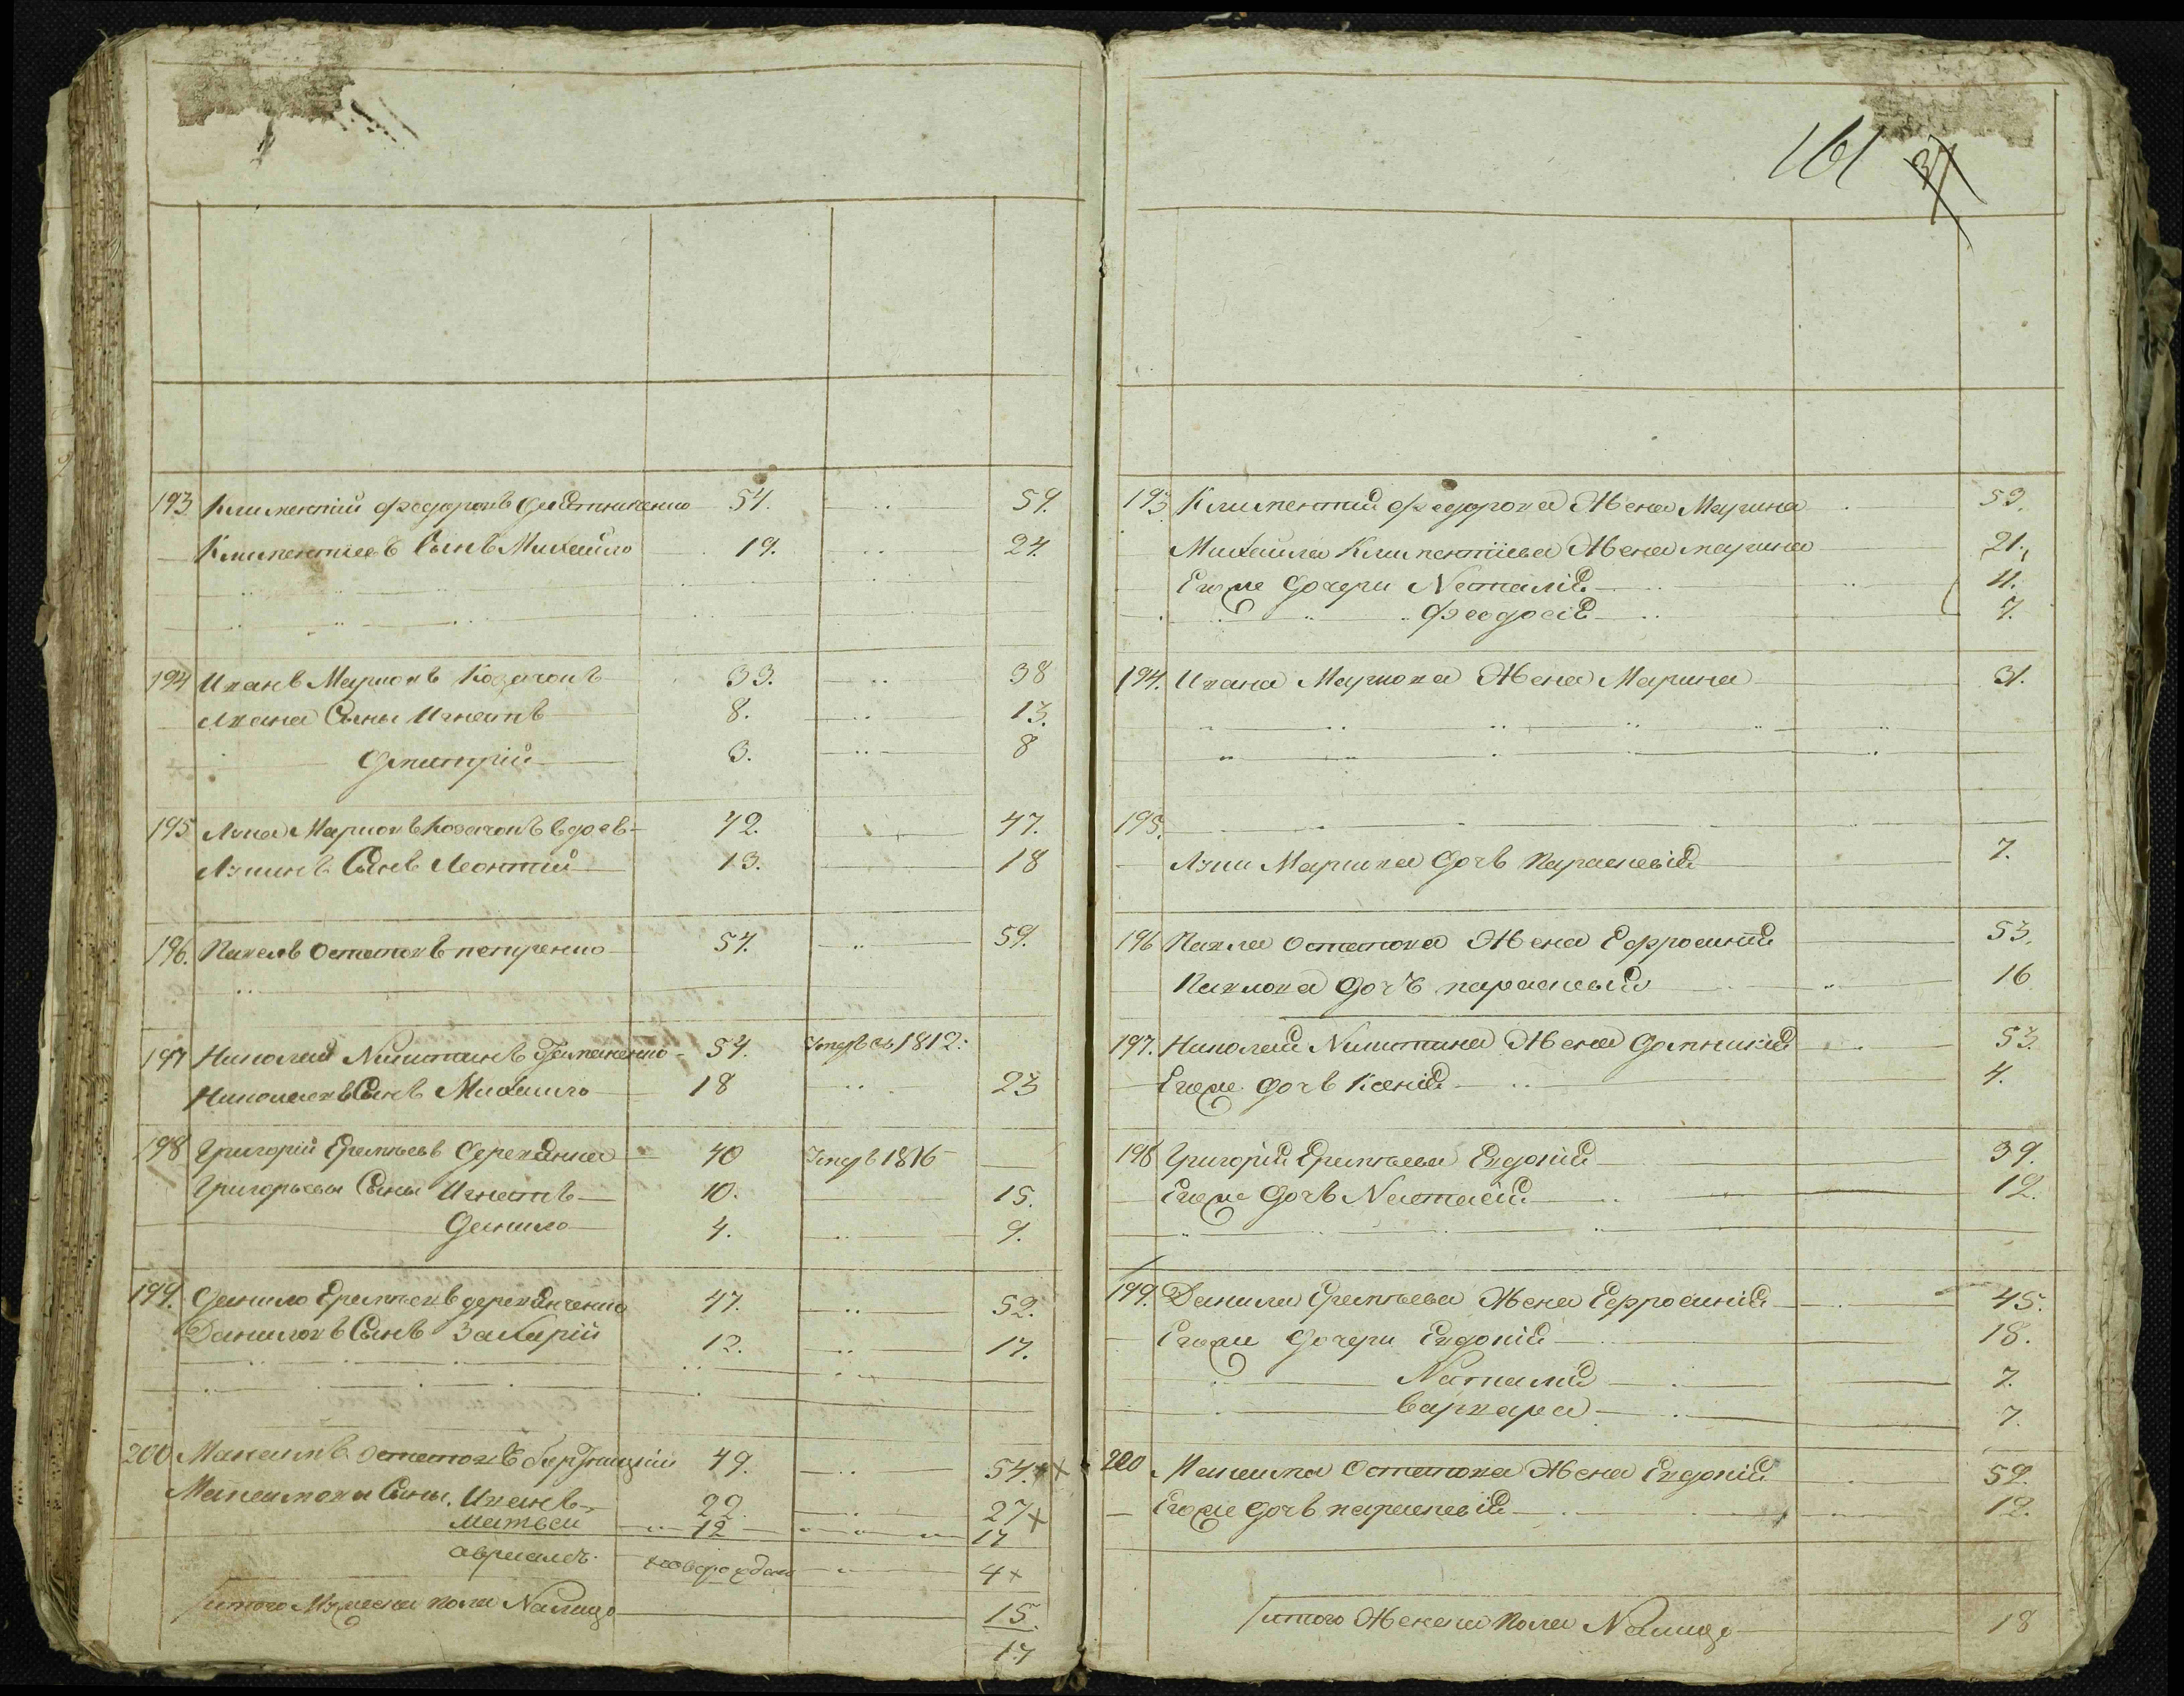 193 Климентий Федоровъ 54. 59.
Климентиевъ Сынъ Михайло 19. 24.
194 Иванъ Марковъ Козачокъ 33. 38
Ивана Сыны Игнатъ 8. 13.
Дмитрій 3. 8
195 Марковъ Козачокъ вдовъ 42. 47.
Сынъ Леонтий 13. 18
196. Павелъ Остаповъ петренко 54. 59.
197 Николай Никитинъ 54. Умеръ въ 1812.
Николаевъ Сынъ Михайло 18 23
198 Григорий Еремеевъ 40 Умеръ 1816
Григорьевы Сыны Игнатъ 10. 15.
Данило 4. 9.
199. Данило Еремеевъ 47. 52.
Даниловъ Сынъ Захарій 12. 17.
200 Максимъ Остаповъ 49. 54. x x
Максимовы Сыны. Иванъ 22. 27 x
Матвей 12 17
новорожден 4 x
итого Мужеска пола Налицо 15.
17
161 37
193 Климентия Федорова Жена Марина 53.
Михайла Климентіева Жена марина 21.
Егоже Дочери Наталія 11.
Феодосія 7.
194. Ивана Маркова Жена Марина 31.
195.
Маркова Дочь Параскевія 7.
196 Павла Остапова Жена Ефросинія 53.
Павлова Дочъ параскевия 16
197. Николая Никитина Жена Домникія 53.
Егоже Дочь Ксенія 4.
198 Григорія Еремеева Евдокія 39.
Егоже Дочь 12.
199. Данила Еремеева Жена Ефросинія 45.
Егоже Дочери Евдокія 18.
Наталия 7.
варвара 7.
200 Максима Остапова Жена Евдокія 52.
Егоже Дочь параскевія 12.
итого Женска Пола Налицо 18